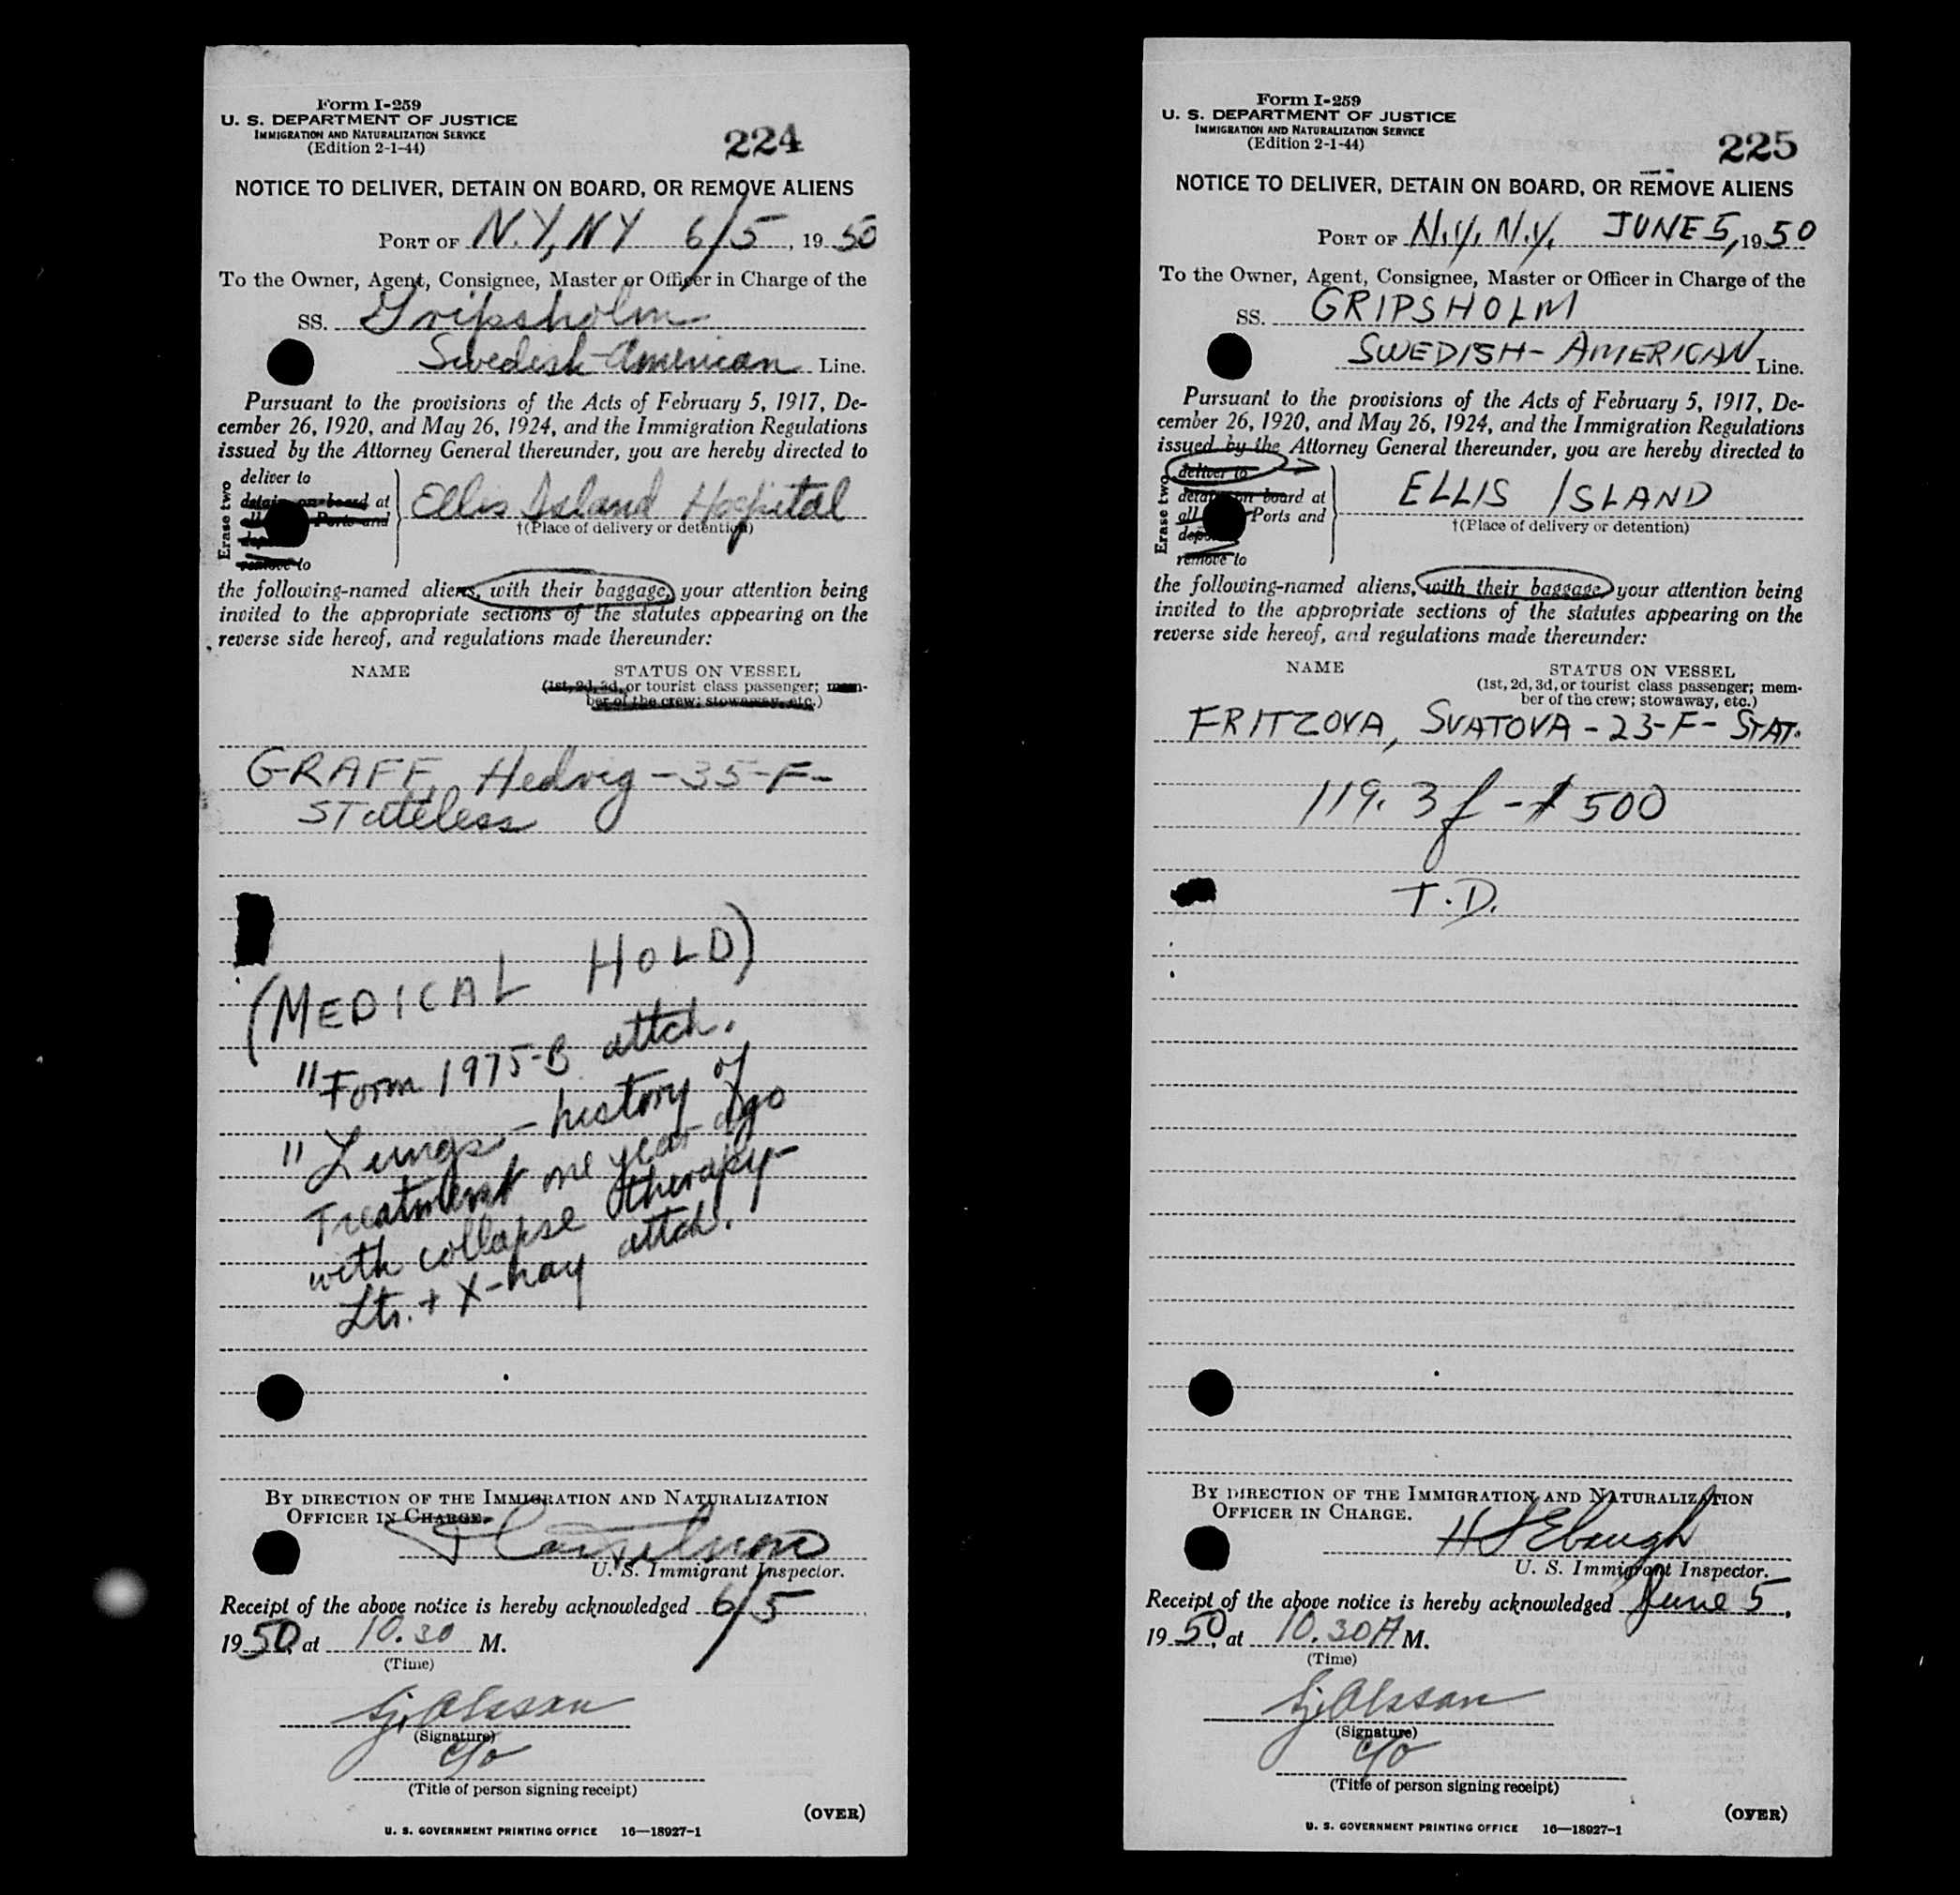 Form I-259
U. S. DEPARTMENT OF JUSTICE
IMMIGRATION AND NATURALIZATION SERVICE
(Edition 2-1-44)
224
NOTICE TO DELIVER, DETAIN ON BOARD, OR REMOVE ALIENS
PORT OF N.Y, NY 6/5, 1950
To the Owner, Agent, Consignee, Master or Officer in Charge of the
SS. Gripsholm
Swedish-American Line.
Pursuant to the provisions of the Acts of February 5, 1917, De-
cember 26, 1920, and May 26, 1924, and the Immigration Regulations
issued by the Attorney General thereunder, you are hereby directed to
Erase two
deliver to
detain on board at
Ports and
remove to
Ellis Island Hospital
†(Place of delivery or detention)
the following-named aliens, with their baggage, your attention being
invited to the appropriate sections of the statutes appearing on the
reverse side hereof, and regulations made thereunder:
NAME STATUS ON VESSEL
(1st, 2d, 3d, or tourist class passenger; mem-
ber of the crew; stowaway, etc.)
GRAFF, Hedvig-35-F-
Stateless
(MEDICAL HOLD)
"Form 1975-B attch.
"Lungs - history of
Treatment one year ago
with collapse therapy-
Lts. + X-ray attch.
BY DIRECTION OF THE IMMIGRATION AND NATURALIZATION
OFFICER IN CHARGE.
U. S. Immigrant Inspector.
Receipt of the above notice is hereby acknowledged 6/5
1950, at 10.30 M.
(Time)
Sj. Olsson
(Signature)
c/o
(Title of person signing receipt)
(OVER)
U. S. GOVERNMENT PRINTING OFFICE 16—18927-1
Form I-259
U. S. DEPARTMENT OF JUSTICE
IMMIGRATION AND NATURALIZATION SERVICE
(Edition 2-1-44)
225
NOTICE TO DELIVER, DETAIN ON BOARD, OR REMOVE ALIENS
PORT OF N.Y. N.Y. JUNE 5, 1950
To the Owner, Agent, Consignee, Master or Officer in Charge of the
SS. GRIPSHOLM
SWEDISH-AMERICAN Line.
Pursuant to the provisions of the Acts of February 5, 1917, De-
cember 26, 1920, and May 26, 1924, and the Immigration Regulations
issued by the Attorney General thereunder, you are hereby directed to
Erase two
deliver to
detain on board at
all Ports and
remove to
ELLIS ISLAND
†(Place of delivery or detention)
the following-named aliens, with their baggage, your attention being
invited to the appropriate sections of the statutes appearing on the
reverse side hereof, and regulations made thereunder:
NAME STATUS ON VESSEL
(1st, 2d, 3d, or tourist class passenger; mem-
ber of the crew; stowaway, etc.)
FRITZOVA, SVATOVA-23-F-STAT.
119. 3 f - $500
T.D.
BY DIRECTION OF THE IMMIGRATION AND NATURALIZATION
OFFICER IN CHARGE.
H S Ebaugh
U. S. Immigrant Inspector.
Receipt of the above notice is hereby acknowledged June 5,
1950, at 10.30 A M.
(Time)
Sj. Olsson
(Signature)
c/o
(Title of person signing receipt)
(OVER)
U. S. GOVERNMENT PRINTING OFFICE 16—18927-1